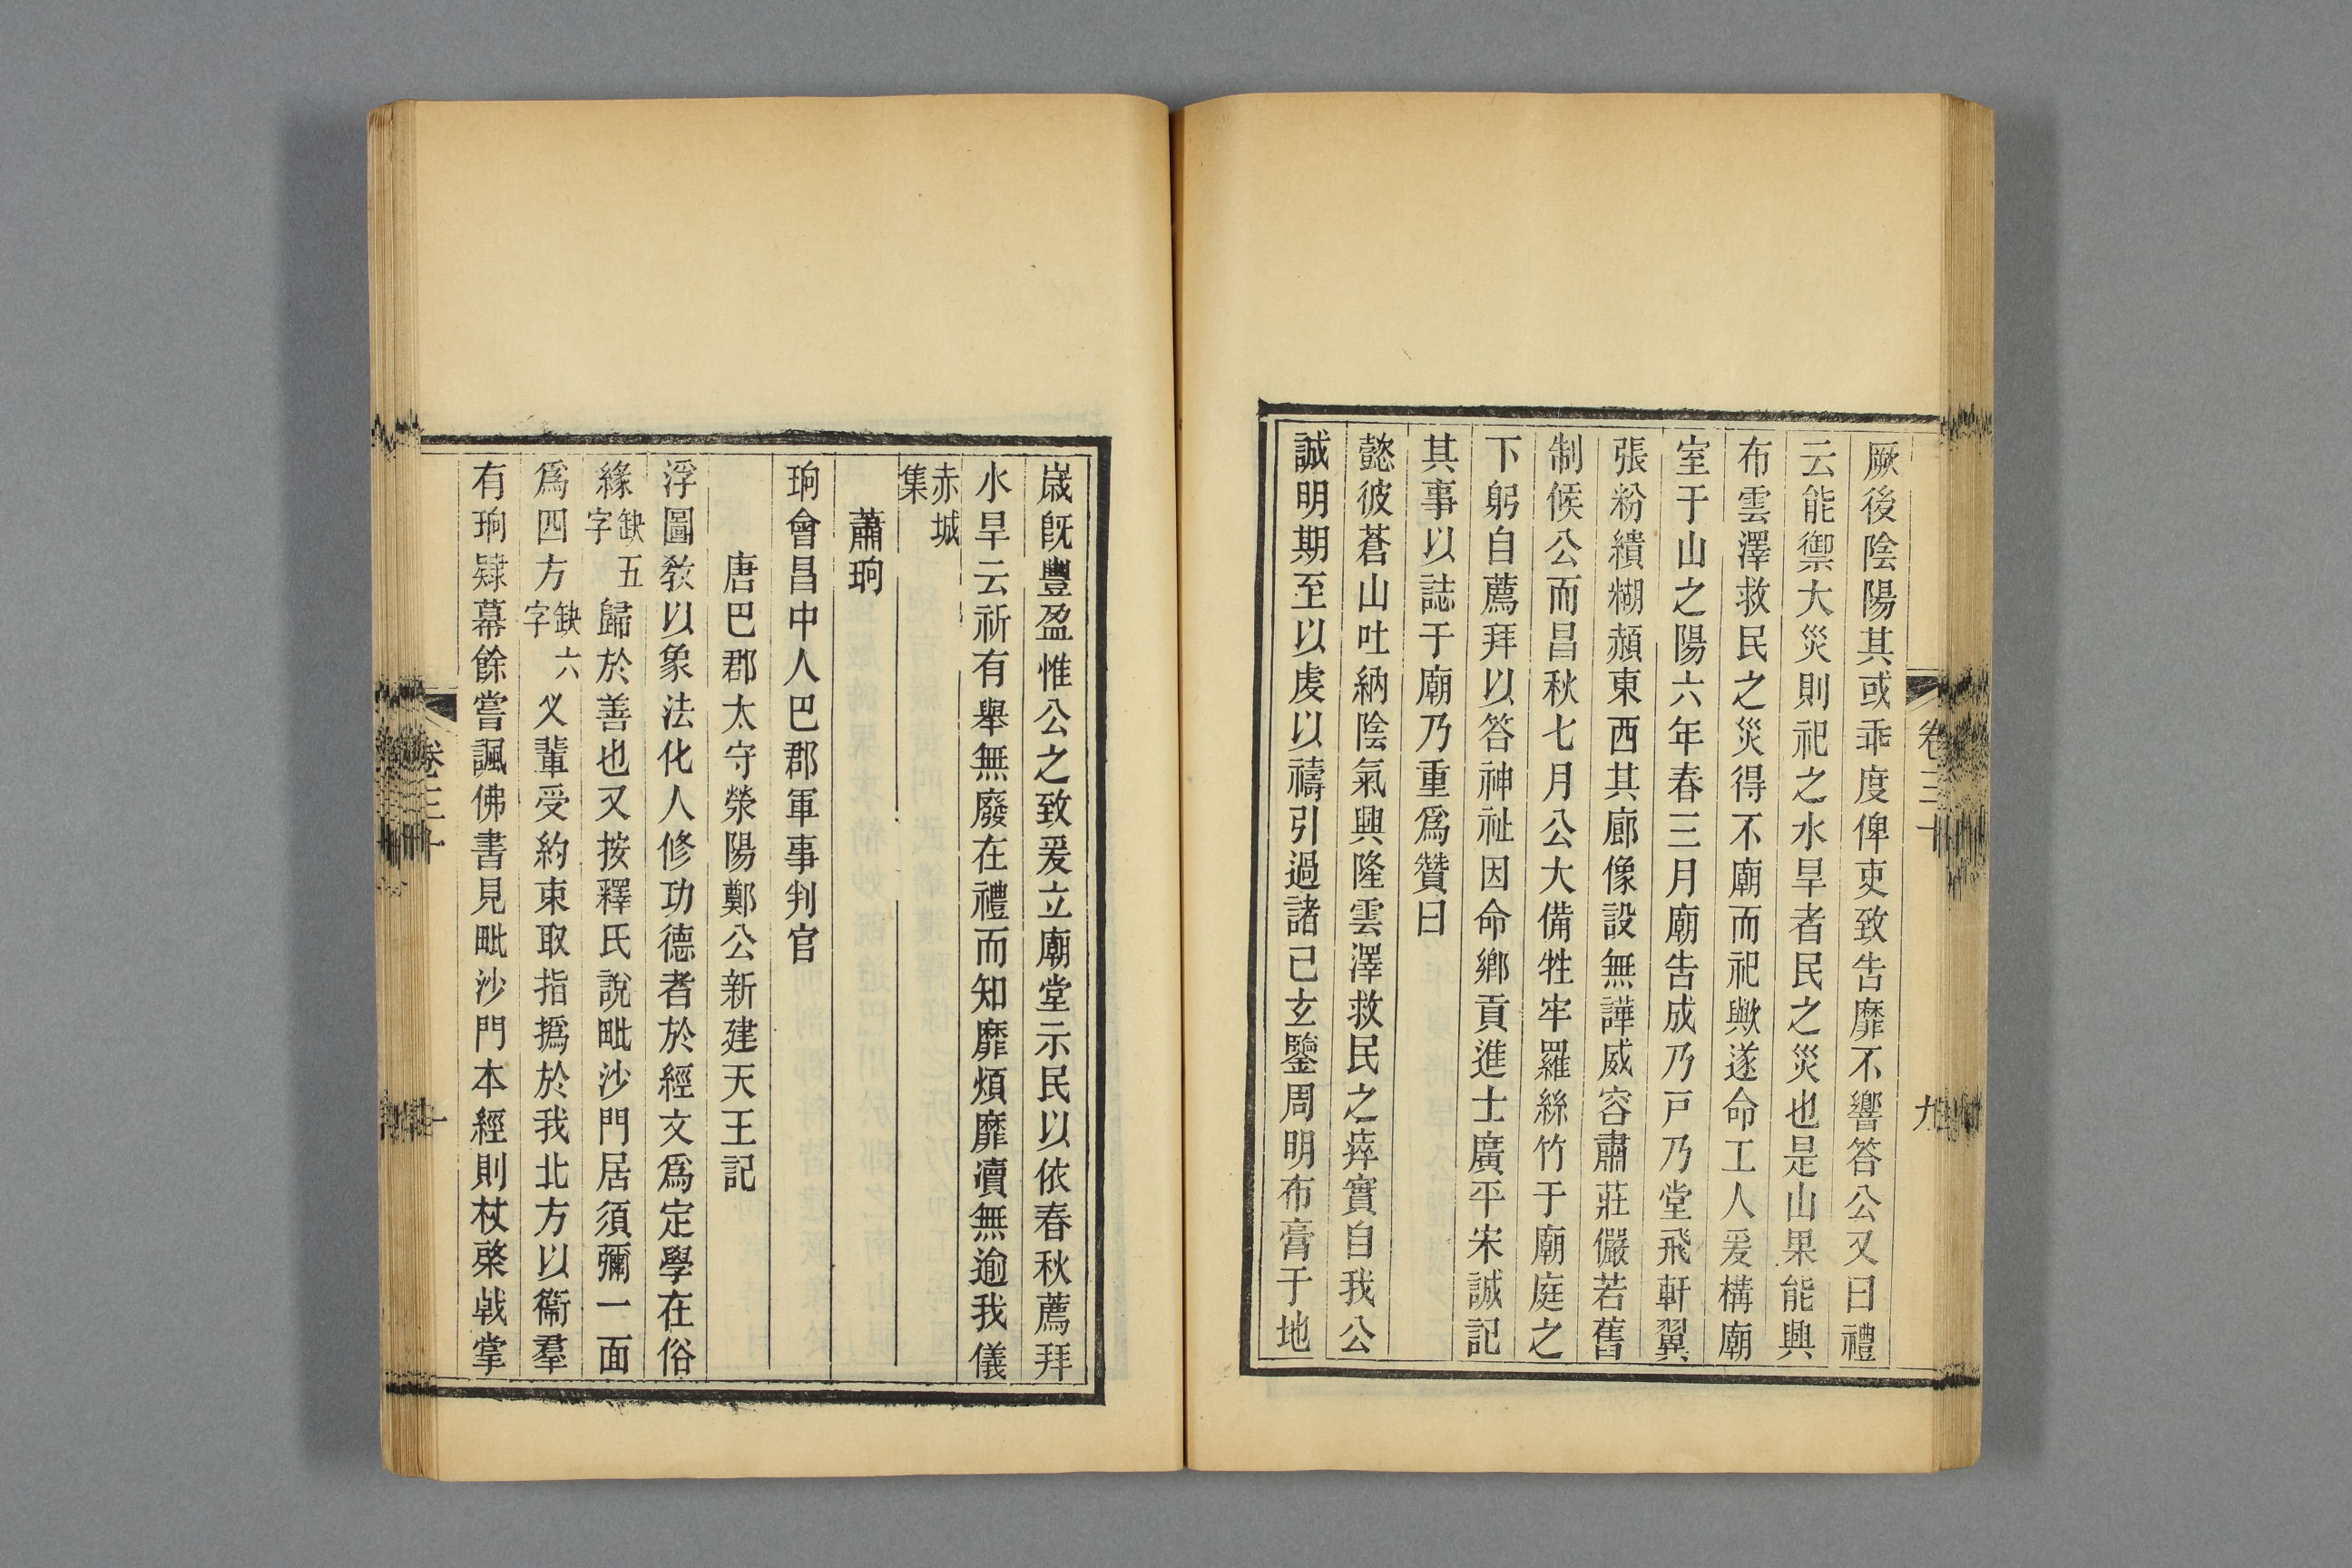 卷三十
九
厥後陰陽其或乖度俾吏致告靡不響答公又曰禮
云能禦大災則祀之水旱者民之災也是山果能興
布雲澤救民之災得不廟而祀歟遂命工人爰構廟
室于山之陽六年春三月廟告成乃戸乃堂飛軒翼
張粉繢糊赬東西其廊像設無譁威容肅莊儼若舊
制候公而昌秋七月公大備牲牢羅絲竹于廟庭之
下躬自薦拜以答神祉因命鄉貢進士廣平宋誠記
其事以誌于廟乃重爲贊曰
懿彼蒼山吐納陰氣興隆雲澤救民之瘁實自我公
誠明期至以虔以禱引過諸己玄鑒周明布膏于地
歲旣豐盈惟公之致爰立廟堂示民以依春秋薦拜
水旱云祈有舉無廢在禮而知靡煩靡瀆無逾我儀
赤城
集
蕭珦
珦會昌中人巴郡軍事判官
唐巴郡太守滎陽鄭公新建天王記
浮圖敎以象法化人修功德者於經文爲定學在俗
緣缺五字歸於善也又按釋氏說毗沙門居須彌一面
爲四方缺六字义輩受約束取指撝於我北方以衞羣
有珦隸幕餘嘗諷佛書見毗沙門本經則杖棨戟掌
卷三十